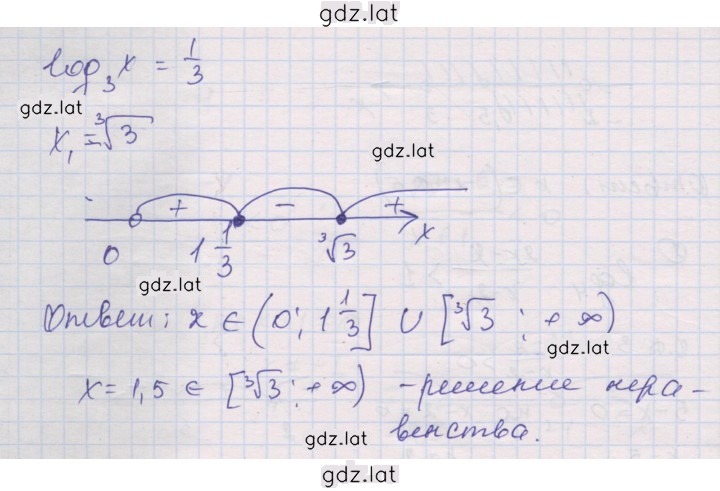 gdz.lat
log₃x = 1/3
gdz.lat
x₁ = ∛3
gdz.lat
+ − + x
0 1 1/3 ∛3
gdz.lat
Ответ: x ∈ (0; 1 1/3] ∪ [∛3; +∞)
gdz.lat
x = 1,5 ∈ [∛3; +∞) - решение нера-
венства.
gdz.lat
gdz.lat